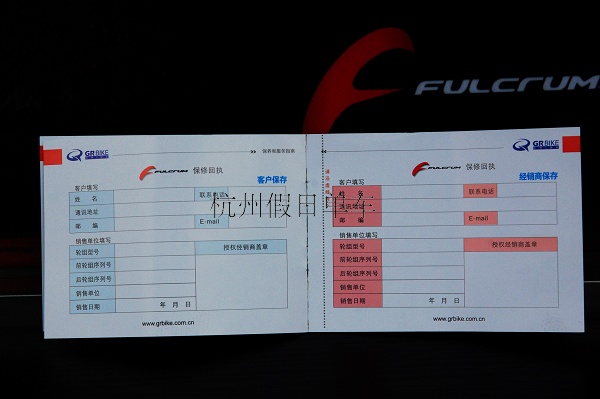 FULCRUM
GRBIKE
>> 保养和服务指南
FULCRUM 保修回执
客户保存
客户填写
姓 名
联系电话
通讯地址
邮 编
E-mail
销售单位填写
轮组型号
授权经销商盖章
前轮组序列号
后轮组序列号
销售单位
销售日期
年 月 日
www.grbike.com.cn
GRBIKE
FULCRUM 保修回执
经销商保存
客户填写
姓 名
联系电话
通讯地址
邮 编
E-mail
销售单位填写
轮组型号
授权经销商盖章
前轮组序列号
后轮组序列号
销售单位
销售日期
年 月 日
www.grbike.com.cn
杭州假日单车